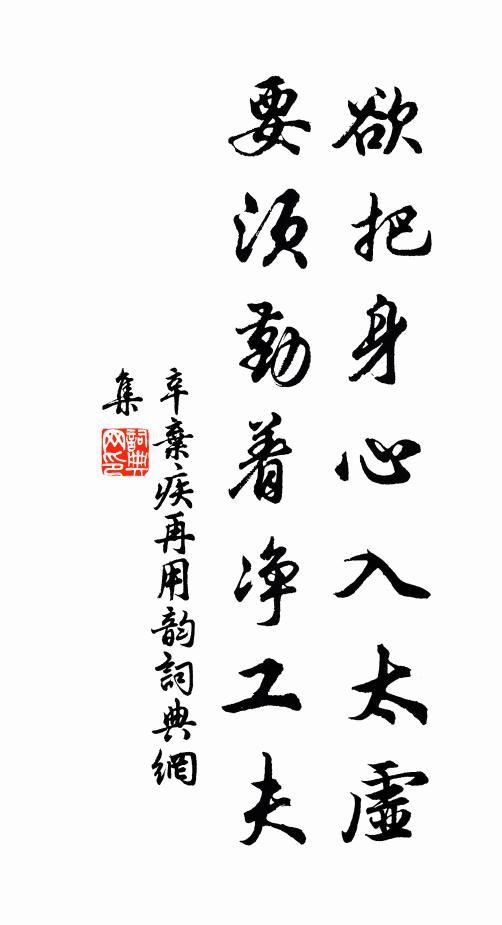 欲把身心入太虛
要須勤着淨工夫
辛棄疾再用韵詞典網
集
詞典
网印